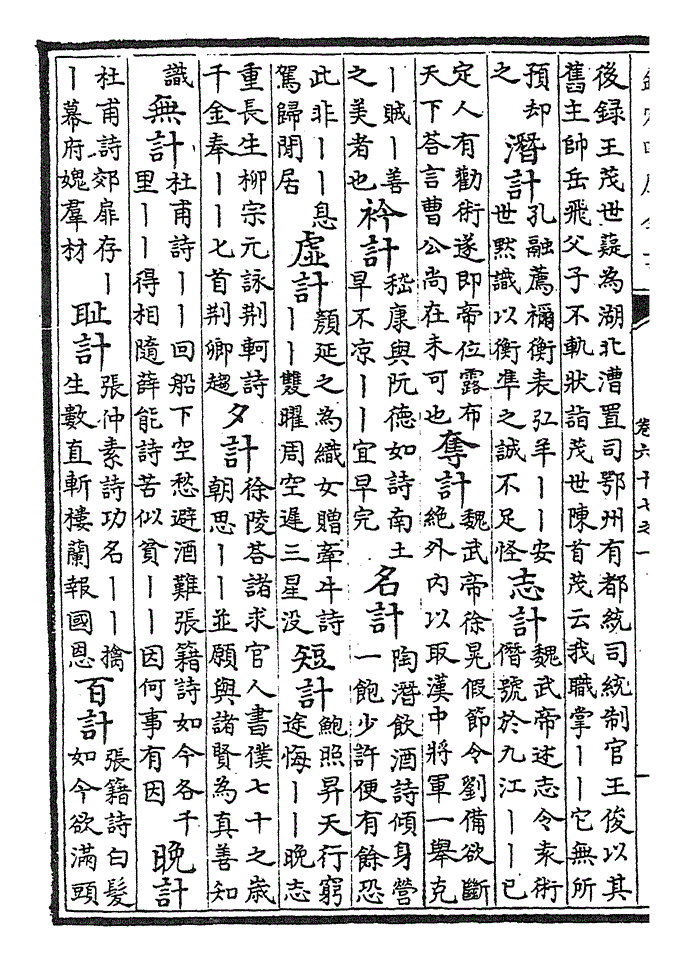 卷六十七之一
後録王茂世薿為湖北漕置司鄂州有都統司統制官王俊以其
舊主帥岳飛父子不軌狀詣茂世陳首茂云我職掌｜｜它無所
預却
之
潛計
孔融薦禰衡表弘羊｜｜安
世黙識以衡凖之誠不足怪
志計
魏武帝述志令袁術
僭號於九江｜｜已
定人有勸術遂即帝位露布
天下荅言曹公尚在未可也
奪計
魏武帝徐晃假節令劉備欲斷
絶外内以取漢中將軍一舉克
｜賊｜善
之美者也
衿計
嵇康與阮德如詩南土
早不凉｜｜宜早完
名計
陶潛飲酒詩傾身營
一飽少許便有餘恐
此非｜｜息
駕歸閒居
虛計
顔延之為織女贈牽牛詩
｜｜雙曜周空遲三星没
短計
鮑照昇天行窮
途悔｜｜晚志
重長生柳宗元詠荆軻詩
千金奉｜｜七首荆卿趨
夕計
徐陵荅諸求官人書僕七十之歲
朝思｜｜並願與諸賢為真善知
識
無計
杜甫詩｜｜回船下空愁避酒難張籍詩如今各千
里｜｜得相隨薛能詩苦似貧｜｜因何事有因
晚計
杜甫詩郊扉存｜
｜幕府媿羣材
耻計
張仲素詩功名｜｜擒
生數直斬樓蘭報國恩
百計
張籍詩白髮
如今欲滿頭